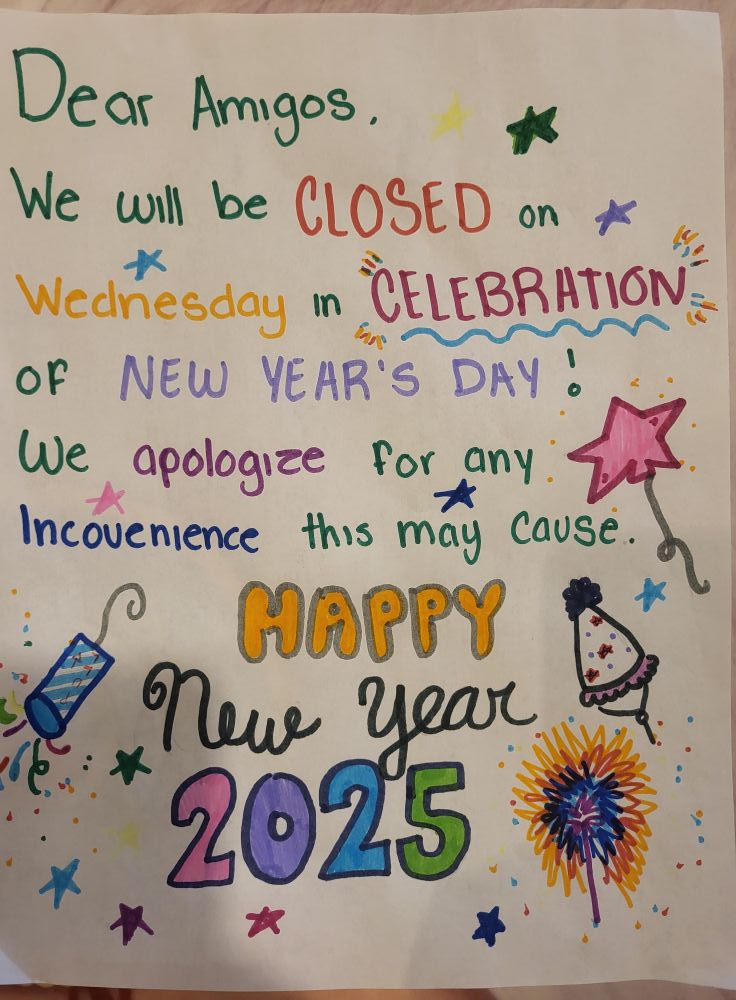 Dear Amigos,
We will be CLOSED on
Wednesday in CELEBRATION
of NEW YEAR'S DAY!
We apologize for any
Incouenience this may cause.
HAPPY
New Year
2025